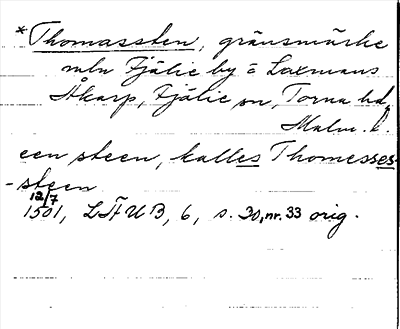 *Thomassten, gränsmärke
mln Fjälie by o Laxmans
Åkarp, Fjälie sn, Torna hd,
Malm. l.
een steen, kalles Thomesses-
-steen
12/7
1501, LÄUB, 6, s. 30, nr. 33 orig.